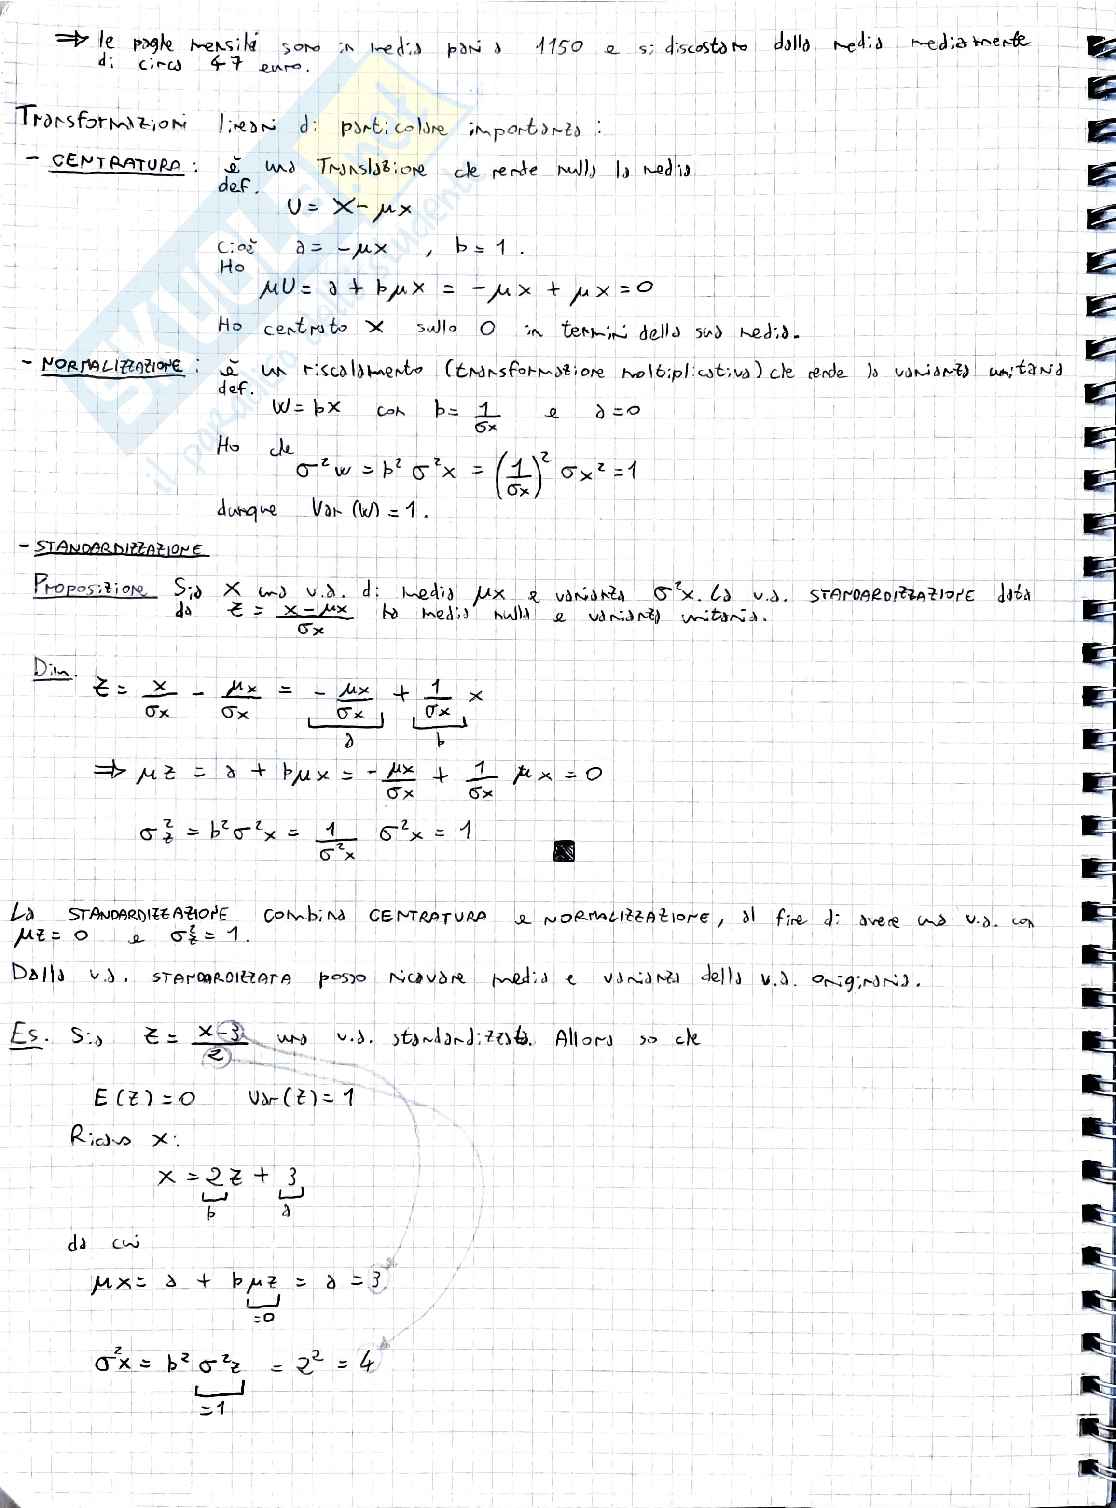 ⇒ le paghe mensili sono in media pari a 1150 e si discostano dalla media mediamente
di circa 47 euro.
Transformazioni lineari di particolare importanza:
- CENTRATURA: è una Translazione che rende nulla la media
def.
U = X - μx
cioè a = -μx , b = 1.
Ho
μU = a + bμx = -μx + μx = 0
Ho centrato X sullo 0 in termini della sua media.
- NORMALIZZAZIONE: è un riscalamento (transformazione moltiplicativa) che rende la varianza unitaria
def.
W = bX con b = 1/σx e a = 0
Ho che
σ²w = b² σ²x = (1/σx)² σx² = 1
dunque Var(W) = 1.
- STANDARDIZZAZIONE
Proposizione Sia X una v.a. di media μx e varianza σ²x. La v.a. STANDARDIZZAZIONE data
da Z = (x - μx)/σx ha media nulla e varianza unitaria.
Dim. Z = x/σx - μx/σx = - μx/σx + 1/σx x
a b
⇒ μz = a + bμx = - μx/σx + 1/σx μx = 0
σ²z = b²σ²x = 1/σ²x σ²x = 1
La STANDARDIZZAZIONE combina CENTRATURA e NORMALIZZAZIONE, al fine di avere una v.a. con
μz = 0 e σ²z = 1.
Dalla v.a. STANDARDIZZATA posso ricavare media e varianza della v.a. originaria.
Es. Sia Z = (x-3)/2 una v.a. standardizzata. Allora so che
E(Z) = 0 Var(Z) = 1
Ricavo x:
x = 2z + 3
b a
da cui
μx = a + bμz = a = 3
=0
σ²x = b² σ²z = 2² = 4
=1